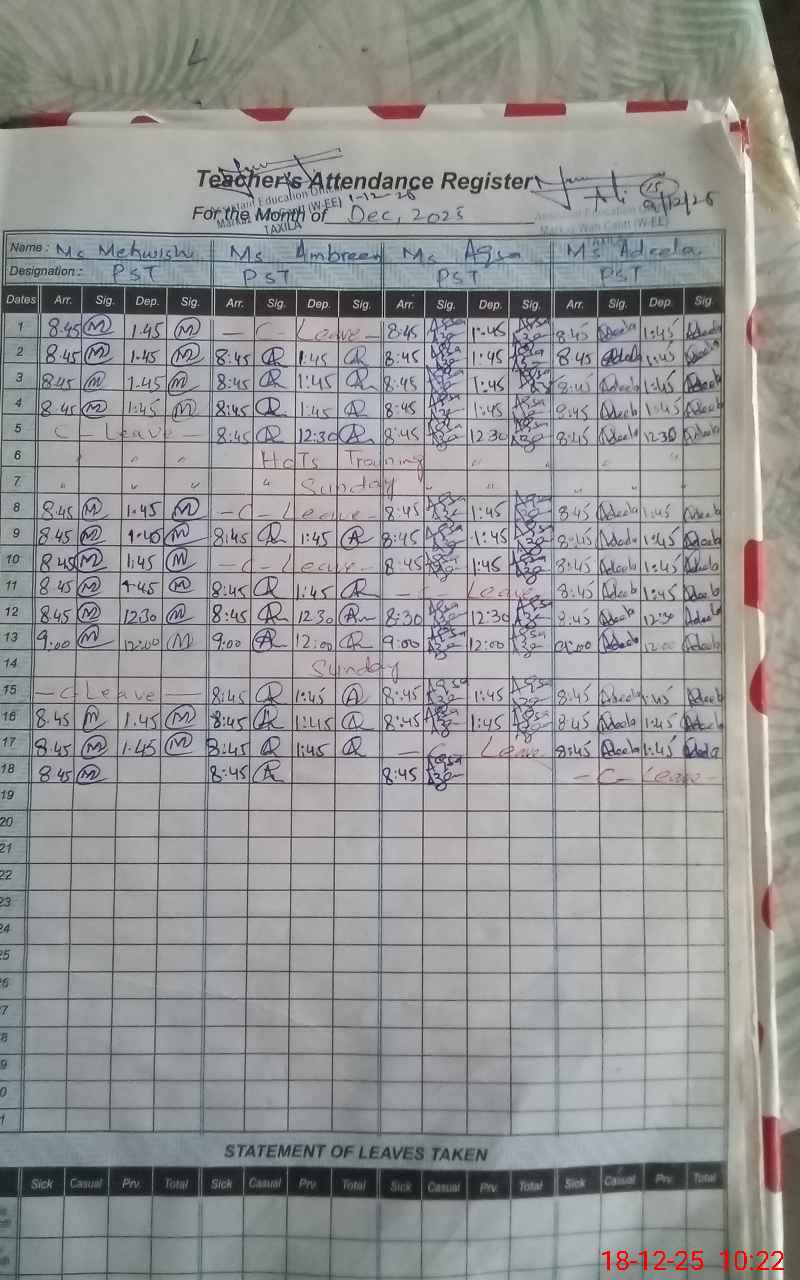 Teacher's Attendance Register
Assistant Education Officer
Markaz Wah Cantt (W-EE)
TAXILA
1-12-25
9/12/25
For the Month of Dec, 2025
Name : Ms Mehwish Ms Ambreen Ms Aqsa Ms Adeela
Designation : PST PST PST PST
Dates Arr. Sig. Dep. Sig. Arr. Sig. Dep. Sig. Arr. Sig. Dep. Sig. Arr. Sig. Dep. Sig.
1 8.45 M 1.45 M - C - Leave - 8:45 Aqsa 1:45 Aqsa 8:45 Adeela 1:45 Adeela
2 8.45 M 1.45 M 8:45 A 1:45 A 8:45 Aqsa 1:45 Aqsa 8:45 Adeela 1:45 Adeela
3 8.45 M 1.45 M 8:45 A 1:45 A 8:45 Aqsa 1:45 Aqsa 8:45 Adeela 1:45 Adeela
4 8.45 M 1:45 M 8:45 A 1:45 A 8:45 Aqsa 1:45 Aqsa 8:45 Adeela 1:45 Adeela
5 C - Leave - 8:45 A 12:30 A 8:45 Aqsa 12:30 Aqsa 8:45 Adeela 12:30 Adeela
6 " " " HOTs Training " " " "
7 " " " " Sunday " " " "
8 8.45 M 1.45 M - C - Leave - 8:45 Aqsa 1:45 Aqsa 8:45 Adeela 1:45 Adeela
9 8.45 M 1.45 M 8:45 A 1:45 A 8:45 Aqsa 1:45 Aqsa 8:45 Adeela 1:45 Adeela
10 8.45 M 1.45 M - C - Leave - 8:45 Aqsa 1:45 Aqsa 8:45 Adeela 1:45 Adeela
11 8.45 M 1.45 M 8:45 A 1:45 A - C - Leave 8:45 Adeela 1:45 Adeela
12 8.45 M 12.30 M 8:45 A 12:30 A 8:30 Aqsa 12:30 Aqsa 8:45 Adeela 12:30 Adeela
13 9:00 M 12:00 M 9:00 A 12:00 A 9:00 Aqsa 12:00 Aqsa 9:00 Adeela 12:00 Adeela
14 Sunday
15 - C Leave - 8:45 A 1:45 A 8:45 Aqsa 1:45 Aqsa 8.45 Adeela 1:45 Adeela
16 8.45 M 1.45 M 8:45 A 1:45 A 8:45 Aqsa 1:45 Aqsa 8:45 Adeela 1:45 Adeela
17 8.45 M 1.45 M 8:45 A 1:45 A - C Leave 8:45 Adeela 1:45 Adeela
18 8.45 M 8:45 A 8:45 Aqsa - C - Leave -
19
20
21
22
23
24
25
6
7
8
9
0
1
STATEMENT OF LEAVES TAKEN
Sick Casual Prv. Total Sick Casual Prv. Total Sick Casual Prv. Total Sick Casual Prv. Total
18-12-25 10:22